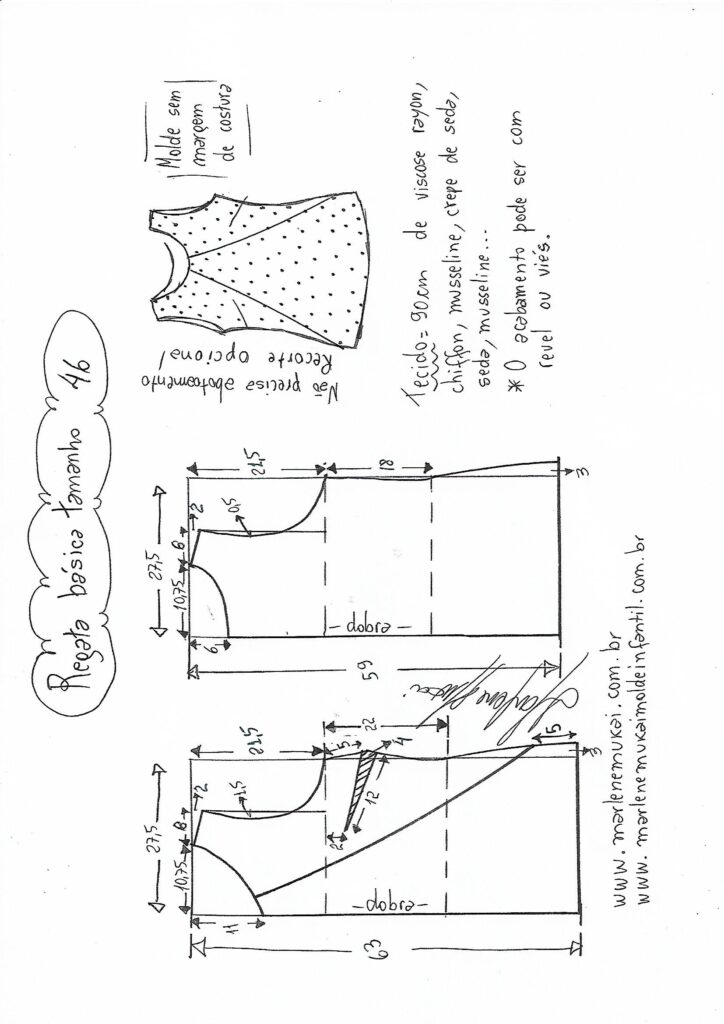 Regata básica tamanho 46
Molde sem
margem
de costura
Não precisa abotoamento
Recorte opcional
Tecido = 90cm de viscose rayon,
chiffon, musseline, crepe de seda,
seda, musseline...
* O acabamento pode ser com
revel ou viés.
27,5
10,75
8
2
21,5
1,5
11
22
5
4
12
2
-dobra-
63
5
3
27,5
10,75
8
2
21,5
0,5
6
18
-dobra-
59
3
Marlene Mukai
www.marlenemukai.com.br
www.marlenemukaimoldeinfantil.com.br